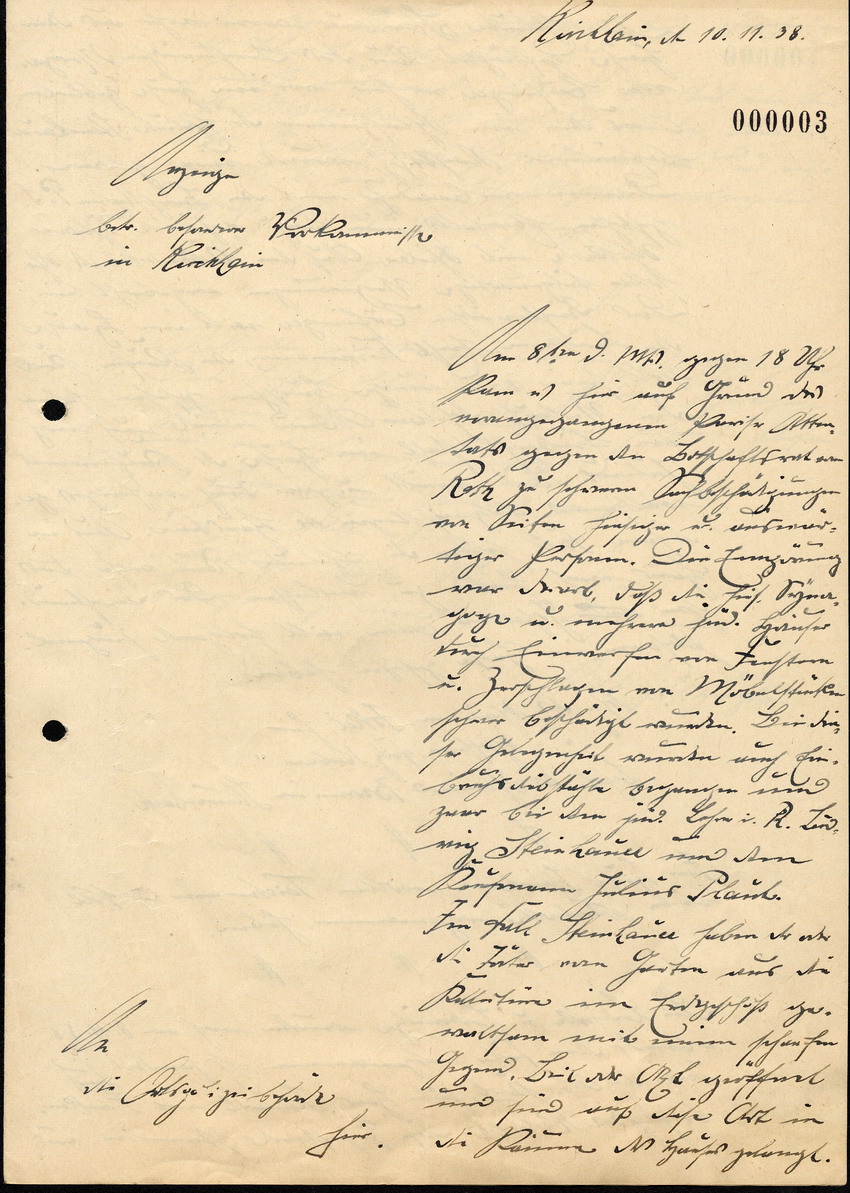 Kirchhain, d. 10. 11. 38.
000003
Anzeige
betr. besonderer Vorkommnisse
in Kirchhain
Am 8ten d. Mts. gegen 18 Uhr
kam es hier auf Grund des
vorangegangenen Pariser Atten-
tats gegen den Botschaftsrat von
Rath zu schweren Sachbeschädigungen
von Seiten hiesiger u. auswär-
tiger Personen. Die Empörung
war derart, daß die hies. Syna-
goge u. mehrere jüd. Häuser
durch Einwerfen von Fenstern
u. Zerschlagen von Möbelstücken
schwer beschädigt wurden. Bei die-
ser Gelegenheit wurden auch Ein-
bruchsdiebstähle begangen und
zwar bei dem jüd. Lehrer i. R. Lud-
wig Steinhauer und dem
Kaufmann Julius Plaut.
Im Fall Steinhauer haben der oder
die Täter vom Garten aus die
Kellertüre im Erdgeschoß ge-
waltsam mit einem scharfen
Gegend. Beil oder Axt geöffnet
und sind auf diese Art in
die Räume des Hauses gelangt.
An
die Ortspolizeibehörde
hier.